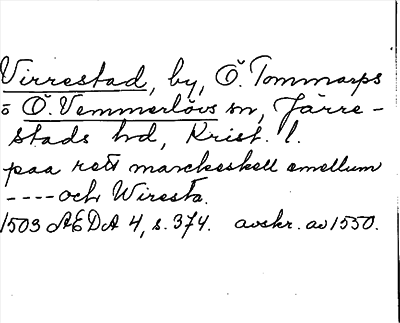 Virrestad, by, Ö. Tommarps
o Ö. Vemmerlövs sn, Järre-
stads hd, Krist. l.
paa rett marckeskell emellum
---- och Wiresta.
1503 ÆDA 4, s. 374. avskr. av 1550.